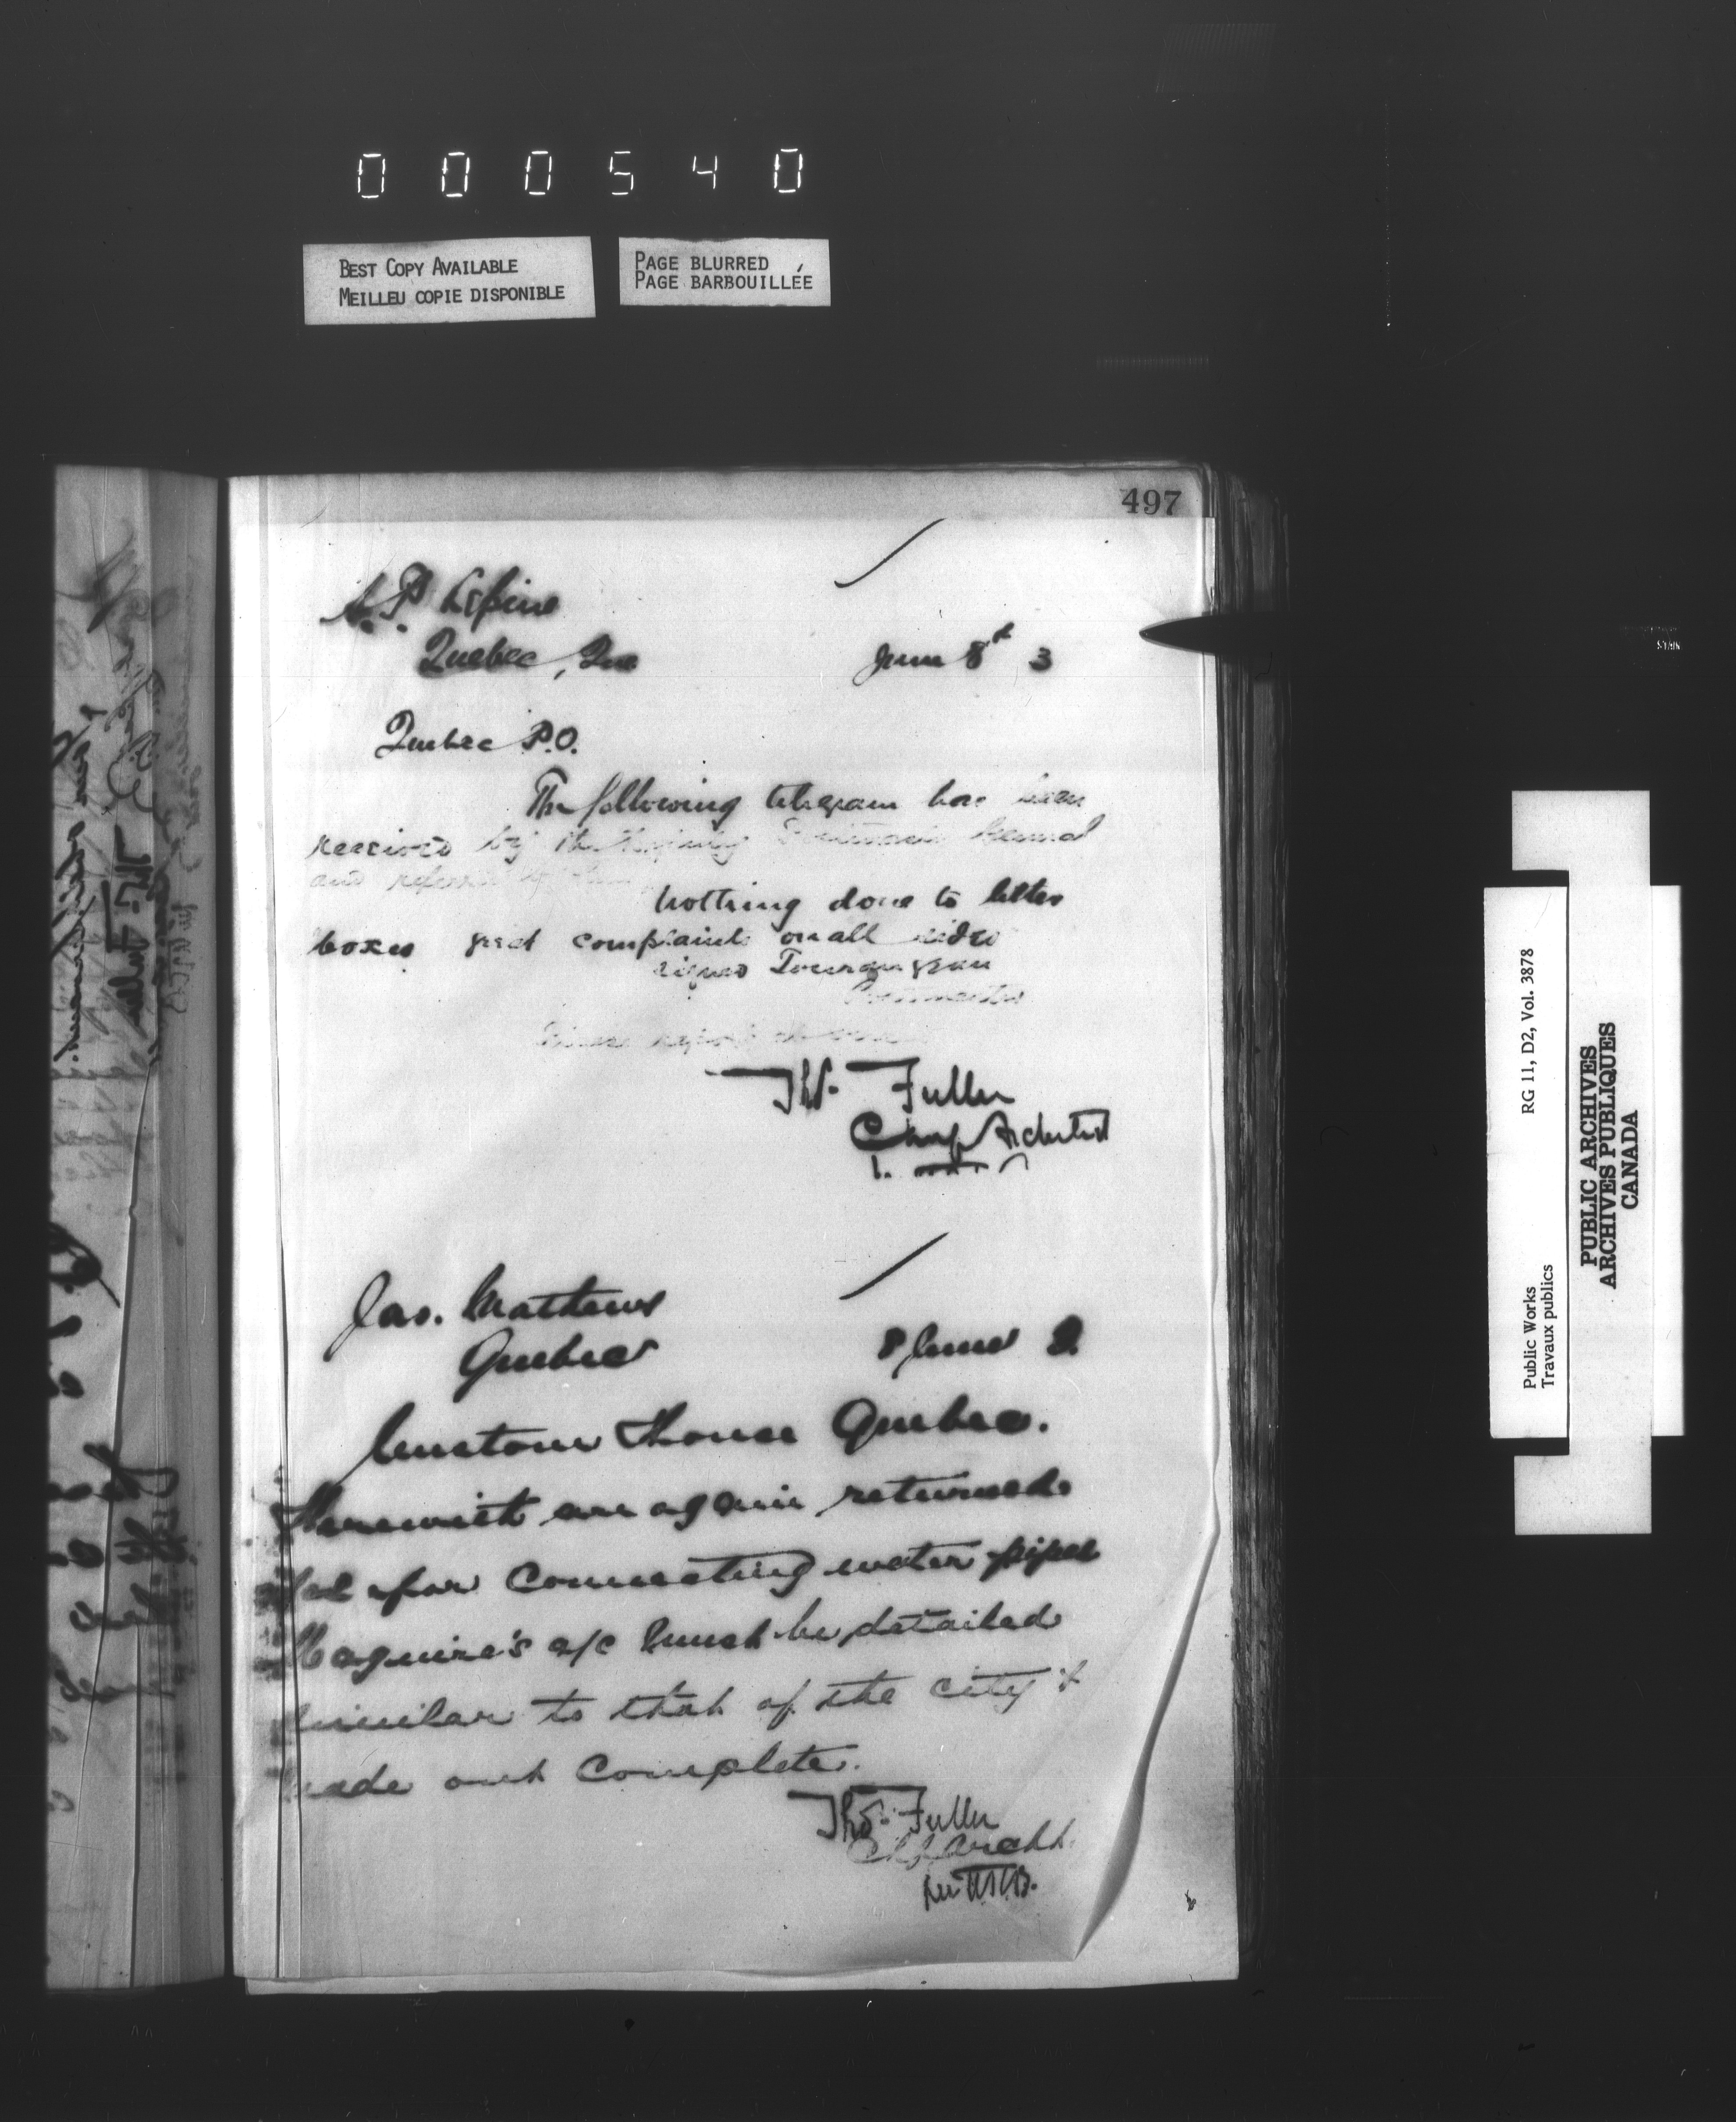 000540
BEST COPY AVAILABLE
MEILLEU COPIE DISPONIBLE
PAGE BLURRED
PAGE BARBOUILLÉE
497
P. Lepine
Quebec, Que
June 8th 3
Quebec P.O.
The following telegram has been
received by the Deputy Postmaster General
and referred
Nothing done to letter
boxes great complaints on all sides
signed Tourangeau
Postmaster
Please report at once
Thos. Fuller
Chief Architect
Jas. Mathews
Quebec
8 June 3.
Custom House Quebec.
Herewith are again returned
for connecting water pipes
Maguire's a/c must be detailed
similar to that of the city &
made out complete.
Thos. Fuller
Chf. Archt.
per
RG 11, D2, Vol. 3878
Public Works
Travaux publics
PUBLIC ARCHIVES
ARCHIVES PUBLIQUES
CANADA